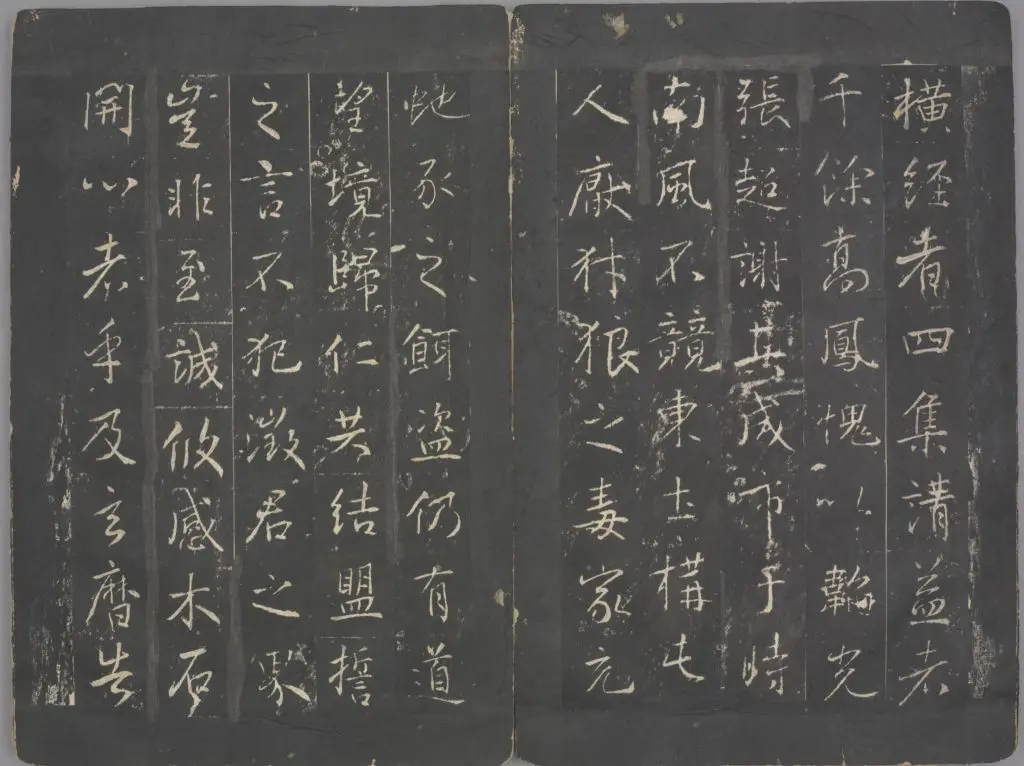 橫經者四集請益者
千餘高鳳愧以韜光
張超謝其成市于時
南風不競東土構屯
人厭豺狼之毒家充
虵豕之餌盜仍有道
望境歸仁若結盟誓
之言不犯徵君之界
豈非至誠攸感木石
開心者乎及玄曆告